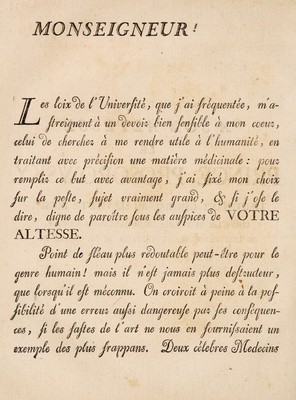 MONSEIGNEUR!
Les loix de l'Université, que j'ai fréquentée, m'a-
ſtreignent à un devoir bien ſenſible à mon coeur,
celui de chercher à me rendre utile à l'humanité, en
traitant avec préciſion une matière médicinale: pour
remplir ce but avec avantage, j'ai fixé mon choix
ſur la peſte, ſujet vraiment grand, & ſi j'oſe le
dire, digne de paroître ſous les auſpices de VOTRE
ALTESSE.
Point de fléau plus redoutable peut-être pour le
genre humain! mais il n'eſt jamais plus deſtructeur,
que lorsqu'il eſt méconnu. On croiroit à peine à la poſ-
ſibilité d'une erreur auſſi dangereuſe par ſes conſéquen-
ces, ſi les faſtes de l'art ne nous en fourniſſaient un
exemple des plus frappans. Deux célebres Medecins